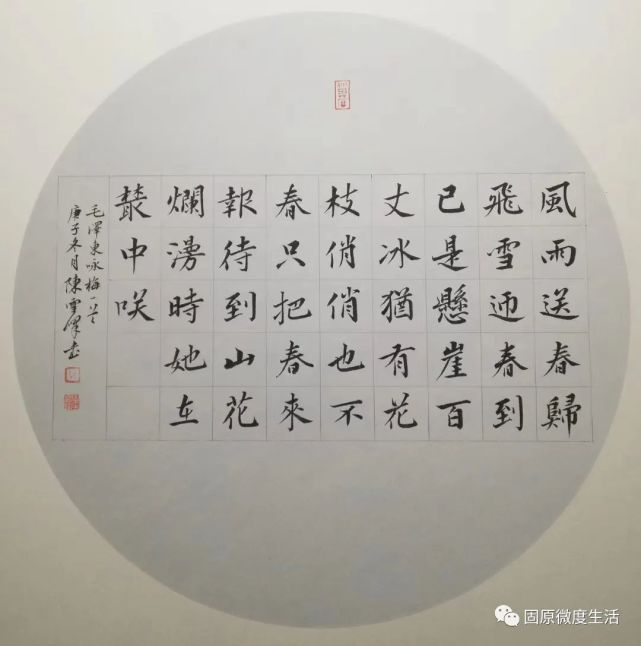 風雨送春歸
飛雪迎春到
已是懸崖百
丈冰猶有花
枝俏俏也不
春只把春來
報待到山花
爛漫時她在
叢中咲
毛澤東咏梅一首
庚子冬月陳雪書
固原微度生活